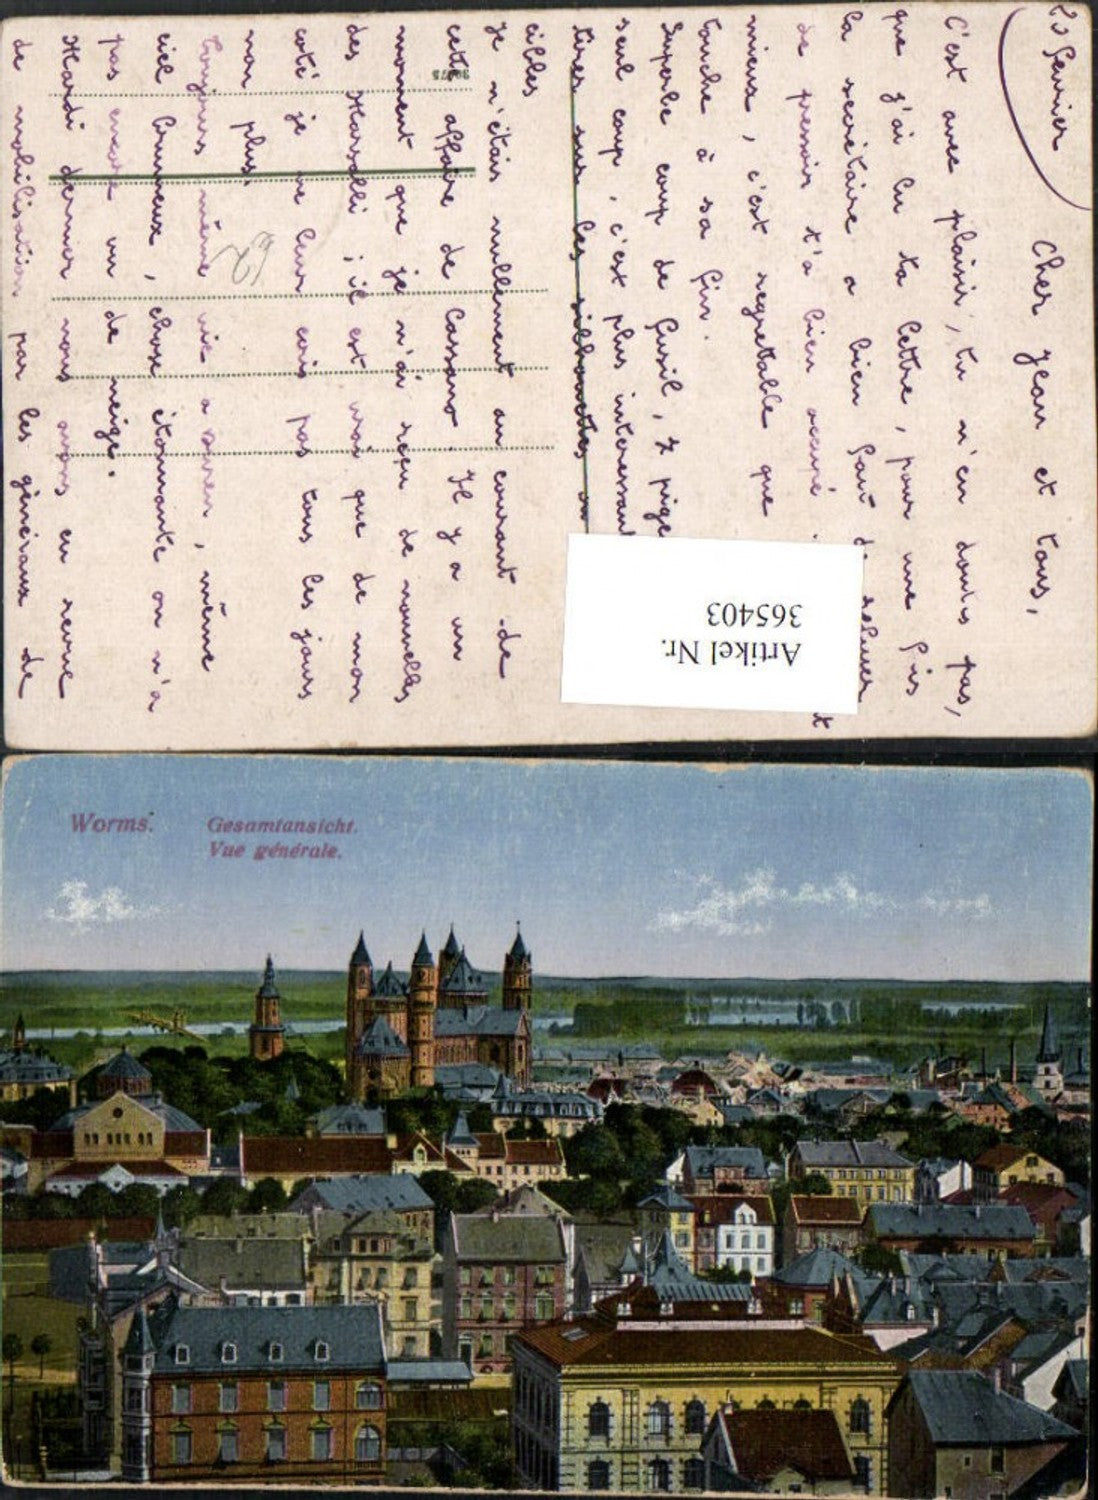 25 Fevrier
Cher Jean et tous,
C'est avec plaisir, tu n'en doutes pas,
que j'ai lu ta lettre, pour une fois
la secrétaire a bien fait de
de pressoir t'a bien occupé. et
mieux, c'est regrettable que
touche à sa fin.
Superbe coup de fusil, 7 pige
seul coup, c'est plus interessant
tirer sur les silhouettes ou
cibles
Je n'étais nullement au courant de
cette affaire de Cassano. Il y a un
moment que je n'ai reçu de nouvelles
des Marsalli; il est vrai que de mon
coté je ne leur ecris pas tous les jours
non plus.
Toujours même vie a suivre, même
ciel brumeux, chose étonnante on n'a
pas encore vu de neige.
Mardi dernier nous avons eu revue
de mobilisation par les généraux de
62
Artikel Nr.
365403
Worms. Gesamtansicht.
Vue générale.